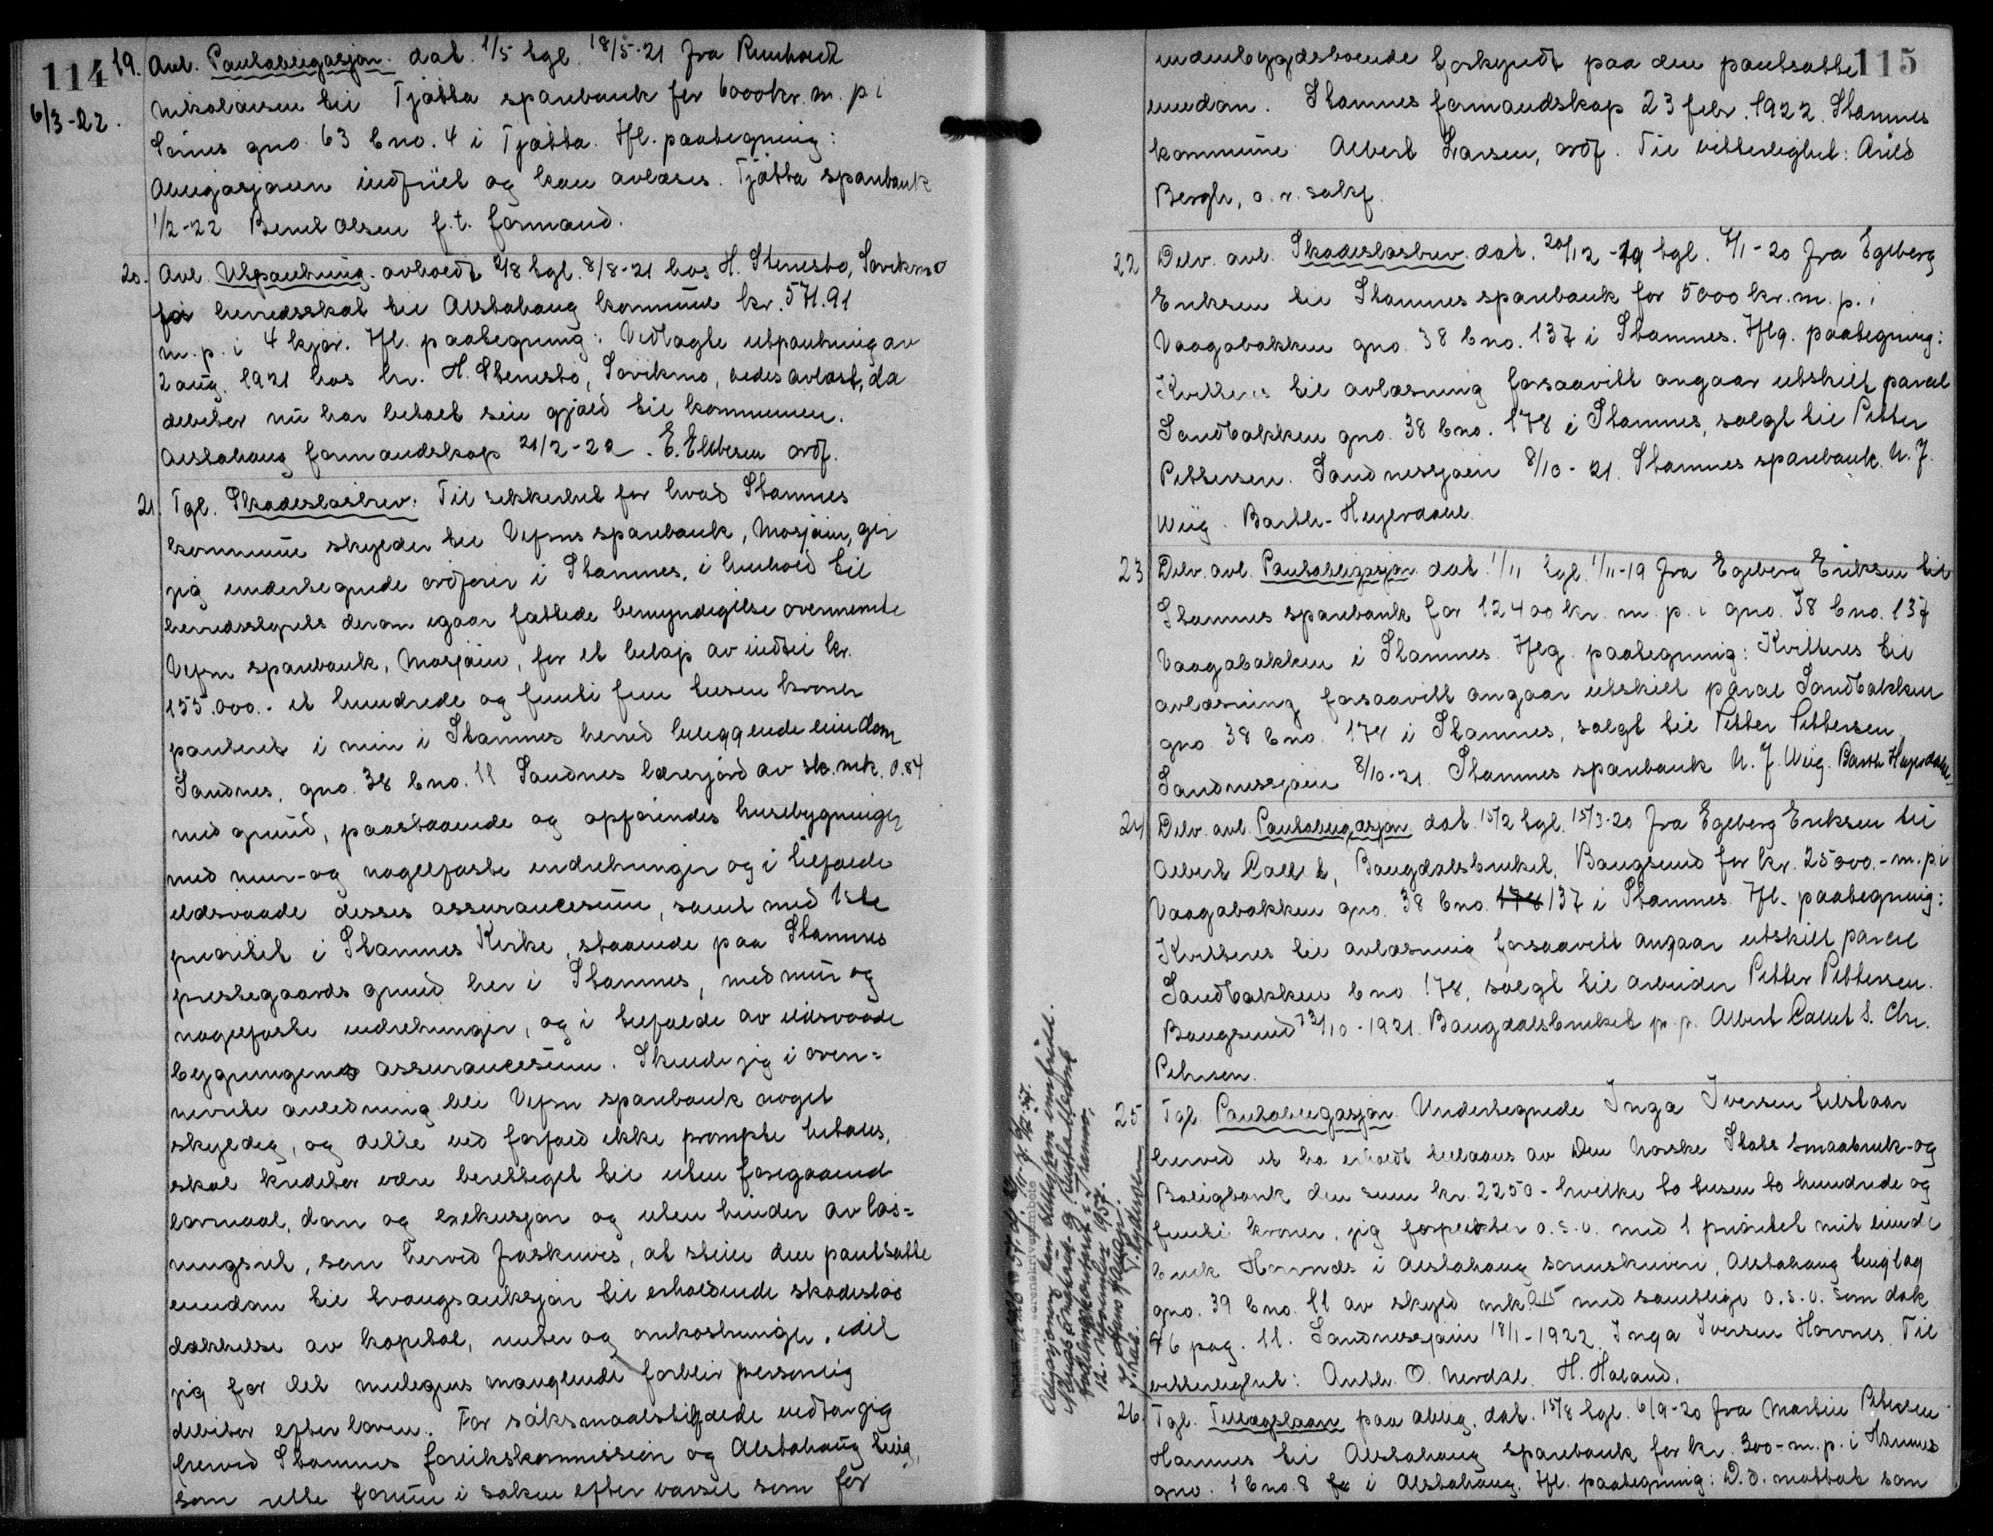 114
6/3-22.
19. Avl. Pantobligasjon dat. 1/5 tgl. 18/5-21 fra Reinholdt
Nikolaisen til Tjøtta sparebank for 6000 kr. m. p. i
gno. 63 bno. 4 i Tjøtta. Ifl. paategning:
Obligasjonen indfriet og kan avlæses. Tjøtta sparebank
1/2-22 Bernt Olsen f.t. formand.
20. Avl. Utpantning avholdt 2/8 tgl. 8/8-21 hos H. Stenesbø, Søvikmo
for herredsskat til Alstahaug kommune kr. 571.91
m. p. i 4 kjør. Ifl. paategning: Vedlagte utpantning av
2 aug. 1921 hos hr. H. Stenesbø, Søvikmo, bedes avlæst, da
debitor nu har betalt sin gjæld til kommunen.
Alstahaug formandskap 21/2-22. E. Ellefsen ordf.
21. Tgl. Skadesløsbrev. Til sikkerhet for hvad Stamnes
kommune skylder til Vefsns sparebank, Mosjøen, gir
jeg undertegnede ordfører i Stamnes, i henhold til
herredsstyrets derom igaar fattede bemyndigelse overnævnte
Vefsn sparebank, Mosjøen, for et beløp av indtil kr.
155.000.- et hundrede og femti fem tusen kroner
panteret i min i Stamnes herred beliggende eiendom
Sandnes, gno. 38 bno. 11 Sandnes lærerjord av sk.mk. 0.84
med grund, paastaaende og opførendes husebygninger
med mur- og nagelfaste indretninger og i tilfælde
ildsvaade disses assurancesum, samt med 1ste
prioritet i Stamnes Kirke, staaende paa Stamnes
prestegaards grund her i Stamnes, med mur og
nagelfaste indretninger, og i tilfælde av ildsvaade
bygningens assurancesum. Skulde jeg i oven=
nævnte anledning bli Vefsn sparebank noget
skyldig, og dette ved forfald ikke prompte betales,
skal kreditor være berettiget til uten foregaaende
lovmaal, dom og exekusjon og uten hinder av løs=
ningsret, som herved fraskrives, at stille den pantsatte
eiendom til tvangsauksjon til erholdende skadesløs
dækkelse av kapital, renter og omkostninger, idet
jeg for det muligens manglende forblir personlig
debitor efter loven. For søksmaalstilfælde vedtar jeg
herved Stamnes forlikskommission og Alstahaug ting
som rette forum i saken efter varsel som for
115
indenbygdsboende forkyndt paa den pantsatte
eiendom. Stamnes formandskap 23 febr. 1922. Stamnes
kommune Albert Larsen, ordf. Til vitterlighet: Arild
Bergh, o.r. sakf.
22 Delv. avl. Skadesløsbrev dat. 20/12-19 tgl. 7/1-20 fra Egeberg
Eriksen til Stamnes sparebank for 5000 kr. m. p. i
Vaagabakken gno. 38 bno. 137 i Stamnes. Iflg. paategning:
Kvitteres til avlæsning forsaavitt angaar utskilt parcel
Sandbakken gno. 38 bno. 178 i Stamnes, solgt til Petter
Pettersen. Sandnessjøen 8/10-21. Stamnes sparebank. N. J.
Wiig. Barth-Heyerdahl.
23 Delv. avl. Pantobligasjon dat. 1/11 tgl. 1/11-19 fra Egeberg Eriksen til
Stamnes sparebank for 12400 kr. m. p. i gno. 38 bno. 137
Vaagabakken i Stamnes. Iflg. paategning: Kvitteres til
avlæsning forsaavitt angaar utskilt parcel Sandbakken
gno. 38 bno. 178 i Stamnes, solgt til Petter Pettersen
Sandnessjøen 8/10-21. Stamnes sparebank N. J. Wiig. Barth Heyerdahl
24 Delv. avl. Pantobligasjon dat. 15/2 tgl. 15/3-20 fra Egeberg Eriksen til
Albert Collett, Bangdalsbruket, Bangsund for kr. 25000.- m. p. i
Vaagabakken gno. 38 bno. 178 137 i Stamnes. Ifl. paategning:
Kvitteres til avlæsning forsaavitt angaar utskilt parcel
Sandbakken bno 178, solgt til arbeider Petter Pettersen.
Bangsund 12/10-1921. Bangdalsbruket p.p. Albert Collett S. Chr.
Petersen.
25 Tgl. Pantobligasjon. Undertegnede Inga Iversen tilstaar
herved at ha erholdt tillaans av Den Norske Stats Smaabruk- og
Boligbank den sum kr. 2250- hvilke to tusen to hundrede og
femti kroner, jeg forpligter o.s.v. med 1 prioritet mit eiende
bruk Havnes i Alstahaug sorenskriveri, Alstahaug tinglag
gno. 39 bno. 11 av skyld mk. 0.15 med samtlige o.s.v. som dok
46 pag. 11. Sandnessjøen 18/1-1922. Inga Iversen Havnes. Til
vitterlighet: Anth. O. Nerdal. H. Haland.
26. Tgl. Tillægslaan paa oblig. dat. 15/8 tgl. 6/9-20 fra Martin Petersen
Hamnes til Alstahaug sparebank for kr. 300- m. p. i Hamnes
gno. 1 bno. 8 i Alstahaug. Ifl. paategning: D.d. mottat som
Alstahaug sorenskriverembete
Obligasjonen
12. november 1957.